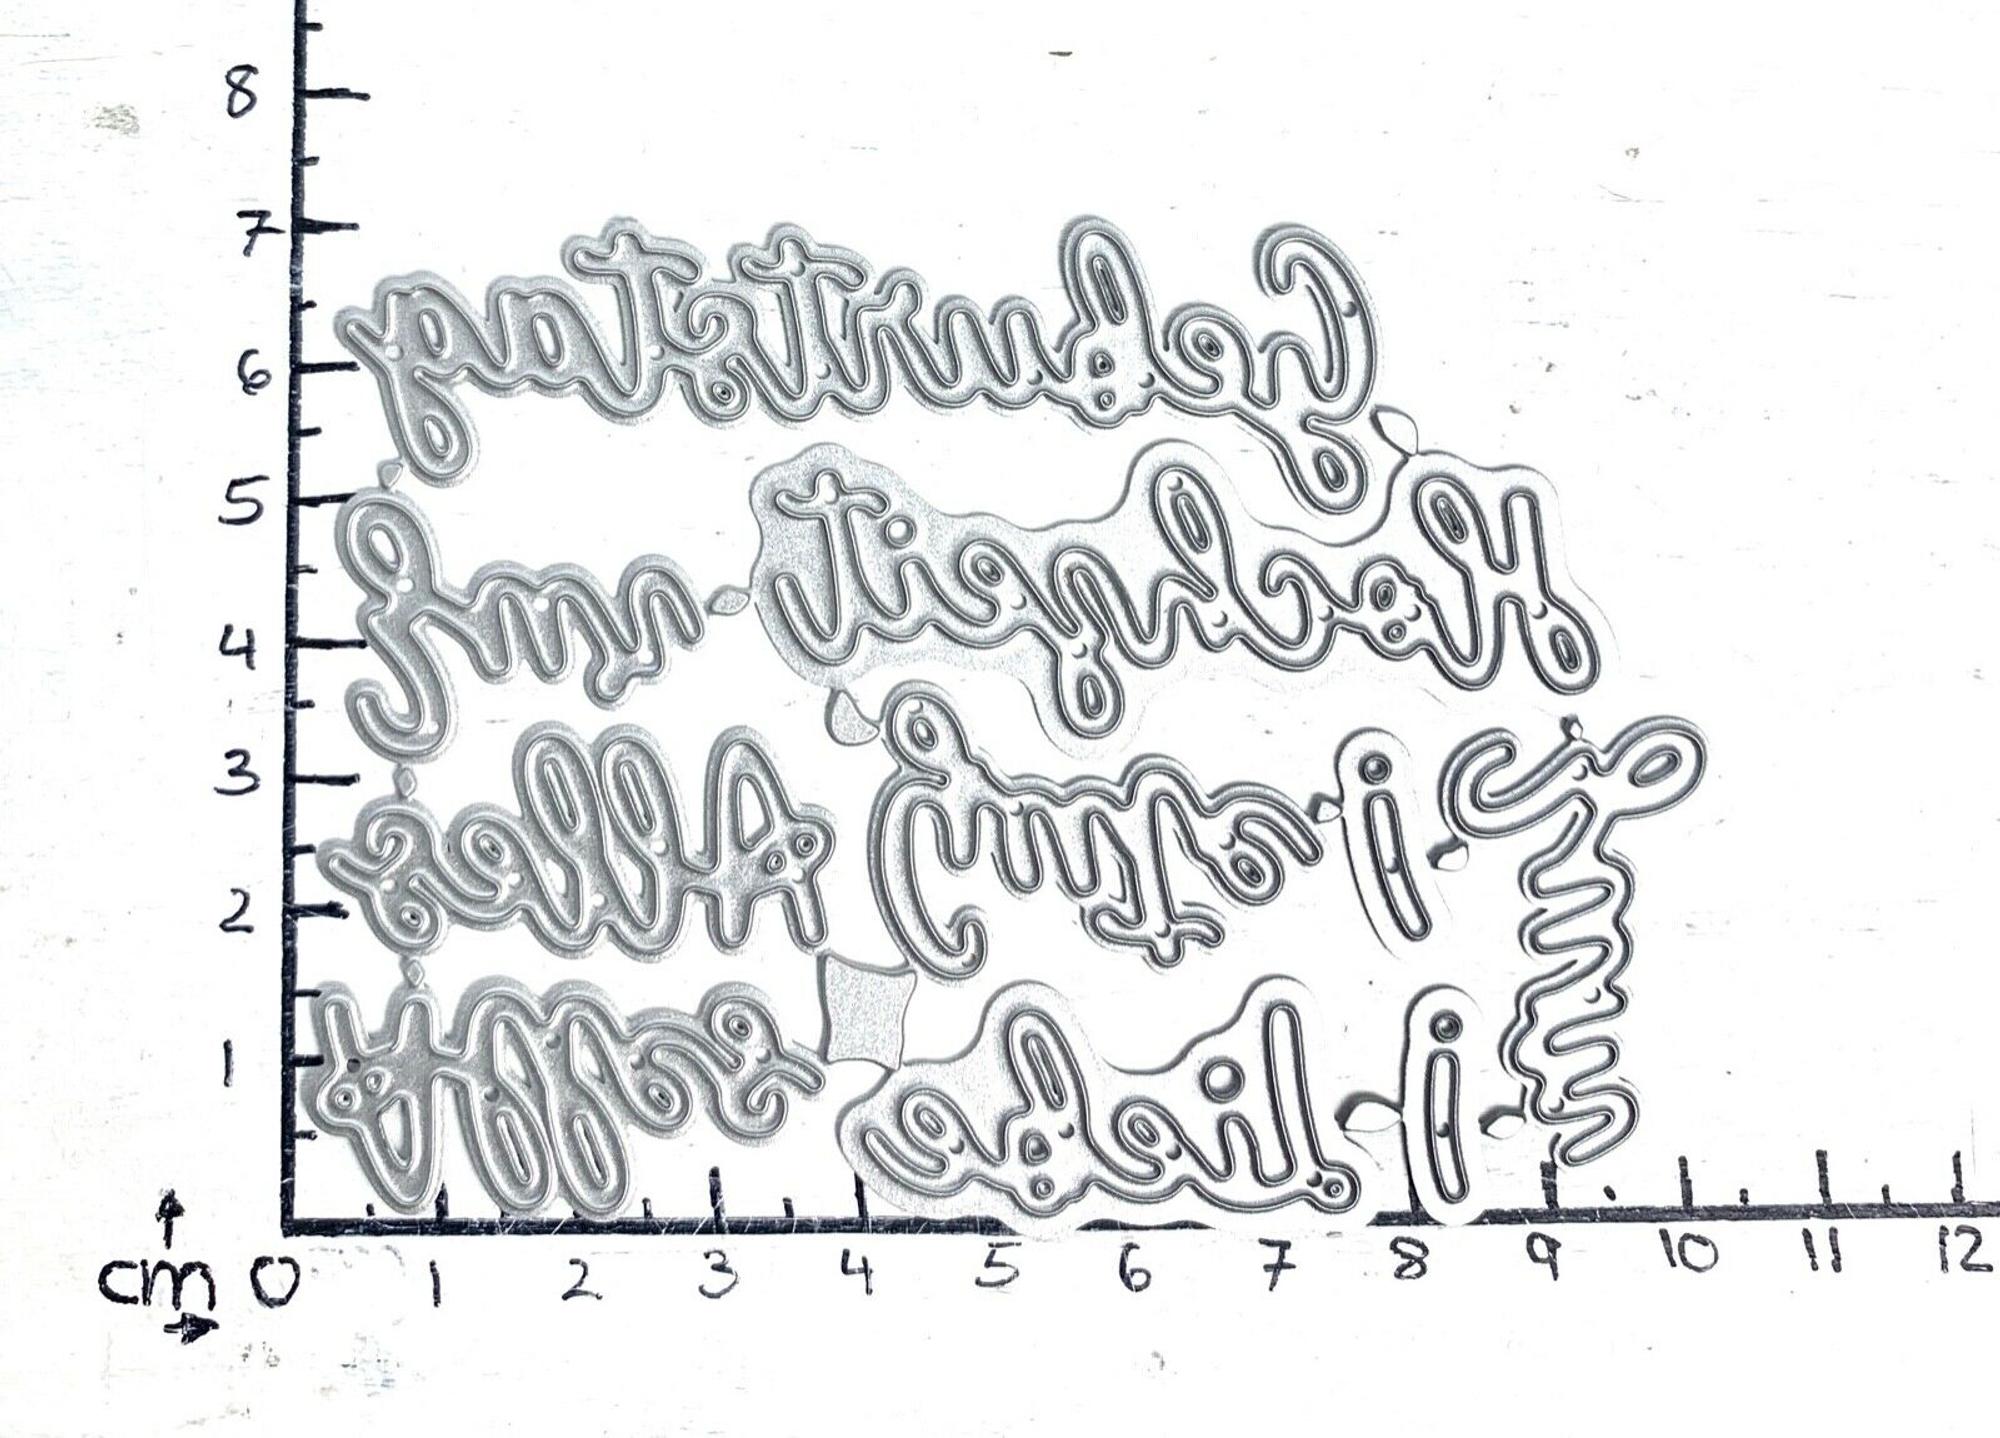 8
7 Geburtstag
6
5 Zur Hochzeit
4
3 Alles Gute ! Zum
2
1 Alles Liebe !
cm 0 1 2 3 4 5 6 7 8 9 10 11 12